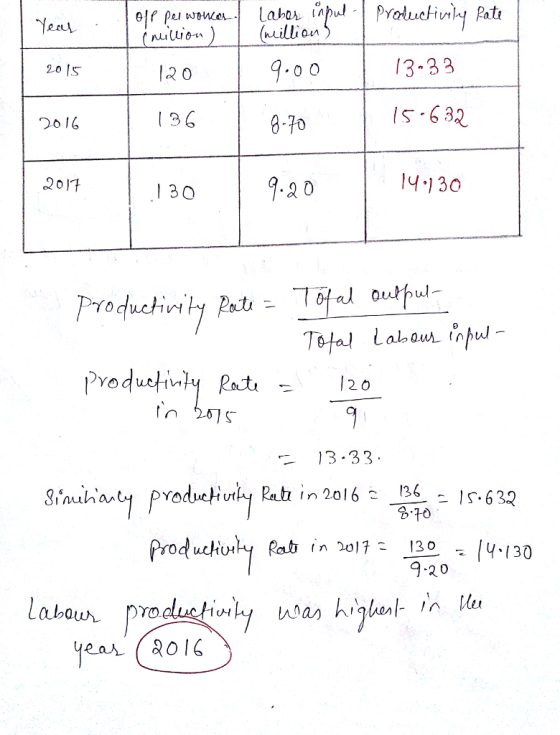 Year | O/P per worker (million) | Labor input (million) | Productivity Rate
2015 | 120 | 9.00 | 13.33
2016 | 136 | 8.70 | 15.632
2017 | 130 | 9.20 | 14.130
Productivity Rate = Total output / Total Labour input
Productivity Rate in 2015 = 120 / 9
= 13.33.
Similiarly productivity Rate in 2016 = 136 / 8.70 = 15.632
Productivity Rate in 2017 = 130 / 9.20 = 14.130
Labour productivity was highest in the
year 2016